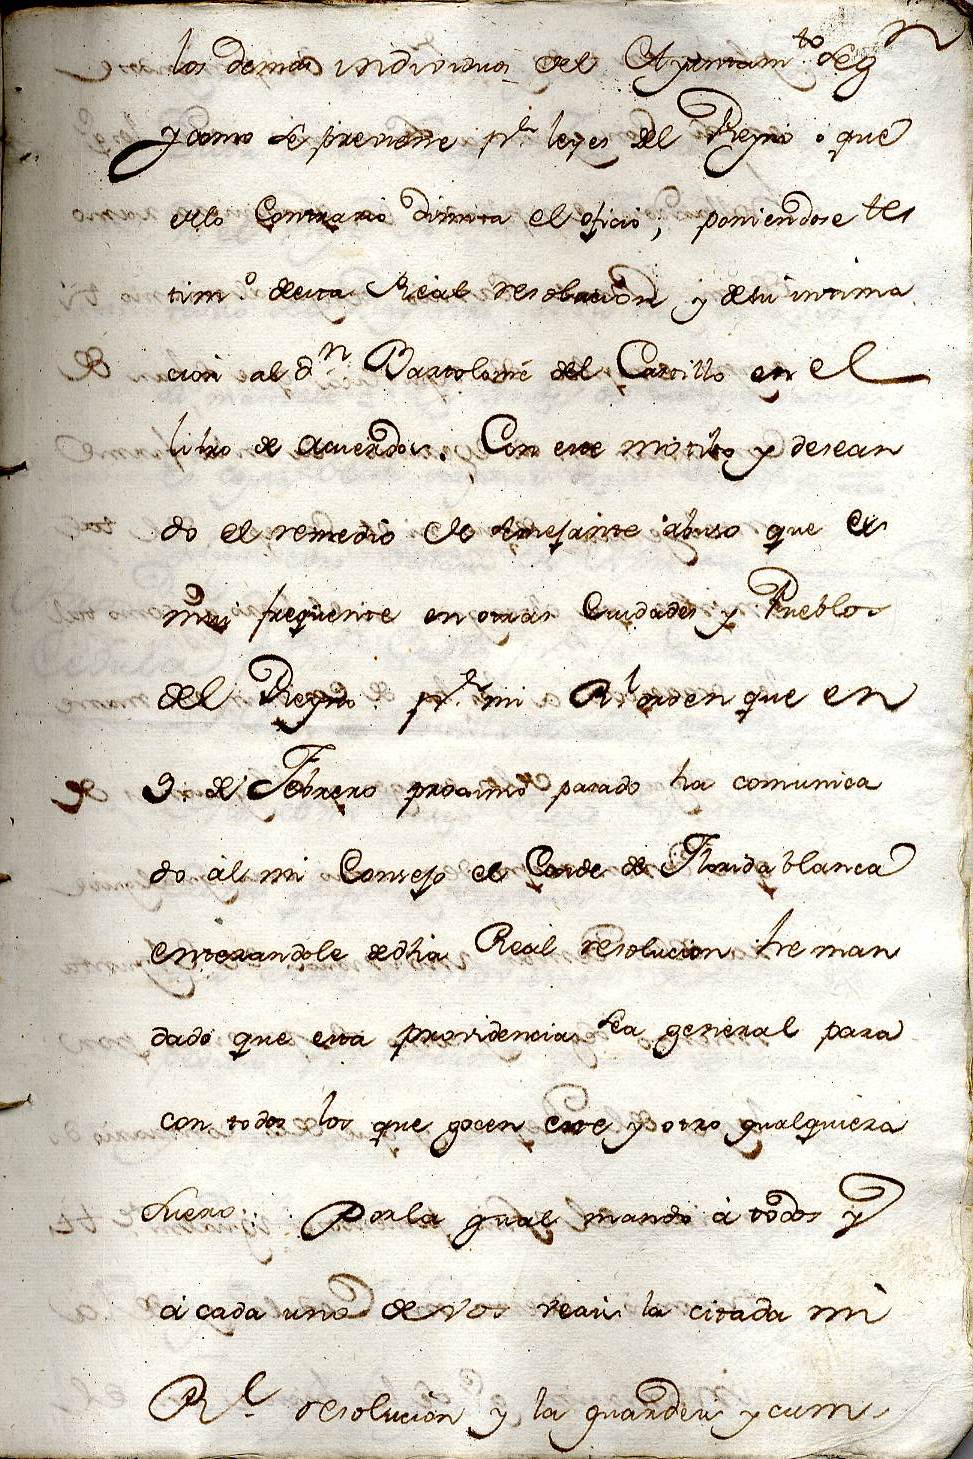 los demas individuos del Ayuntam.to seg.n
y como se previene p.r leyes del Reyno o que
en lo Contrario dimita el oficio, poniendose tes
tim.o de esta Real resolucion y de su intima
cion al d.n Bartolomé del Castillo en el
libro de acuerdos. Con este motibo y desean
do el remedio de semejante abuso que es
mui freqüente en otras Ciudades y Pueblos
del Reyno p.r mi R.l orden que en
9. de Febrero proximo pasado ha comunica
do al mi Consejo el Conde de Florida blanca
enterandole de dha Real resolucion he man
dado que esta providencia sea general para
con todos los que gocen este y otro qualquiera
fuero. Por la qual mando à todos y
à cada uno de vos veais la citada mi
R.l resolucion y la guardeis y cum